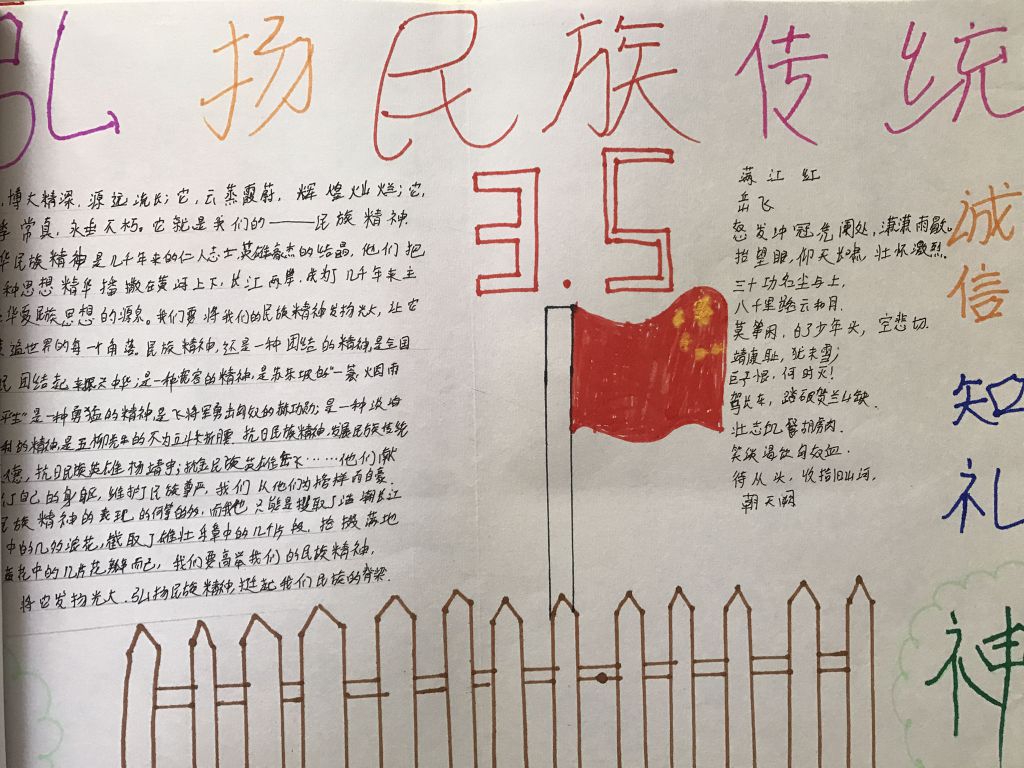 弘扬民族传统
3.5
,博大精深,源远流长;它,云蒸霞蔚,辉煌灿烂;它,
常真,永垂不朽。它就是我们的——民族精神.
民族精神是几千年来的仁人志士英雄豪杰的结晶,他们把
种思想精华播撒在黄河上下,长江两岸,成为了几千年来主
华夏民族思想的源泉。我们要将我们的民族精神发扬光大,让它
世界的每一个角落。民族精神,还是一种团结的精神,是全国
民团结起来振兴中华;是一种宽容的精神,是苏东坡的"一蓑烟雨
平生"是一种勇猛的精神是飞将军勇击匈奴的赫功勋;是一种淡泊
利的精神,是五柳先生的不为五斗米折腰.抗日民族精神,发展民族传统
德,抗日民族英雄杨靖宇;民族英雄岳飞……他们献
了自己的身躯,维护了民族尊严,我们从他们为榜样而自豪.
民族精神的表现,的何等的多,而我也只能是撷取了滔滔长江
中的几多浪花,截取了雄壮乐章中的几个片段,拾掇落地
花中的几片花瓣而已,我们要高举我们的民族精神,
将它发扬光大.弘扬民族精神,挺起我们民族的脊梁.
满江红
岳飞
怒发冲冠凭阑处,潇潇雨歇。
抬望眼,仰天长啸,壮怀激烈.
三十功名尘与土,
八千里路云和月.
莫等闲,白了少年头,空悲切.
靖康耻,犹未雪;
臣子恨,何时灭!
驾长车,踏破贺兰山缺.
壮志饥餐胡虏肉.
笑谈渴饮匈奴血.
待从头,收拾旧山河,
朝天阙
诚信
知礼
神